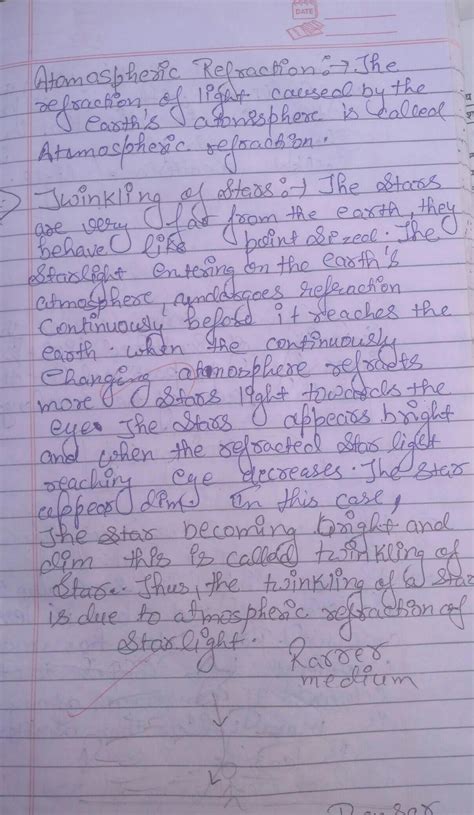 DATE
Atomaspheric Refraction:→ The
refraction of light caused by the
earth's atomisphere is called
Atamaspheric refraction.
Twinkling of stars:→ The stars
are very far from the earth, they
behave like point sized. The
starlight entering on the earth's
atmosphere, undargoes refraction
continuously before it reaches the
earth. when the continuously
changing atmosphere refracts
more stars light towards the
eye. The stars appears bright
and when the refracted star light
reaching eye decreases. The star
appear dim. In this case,
The star becoming bright and
dim this is called twinkling of
star. Thus, the twinkling of a star
is due to atmospheric refraction of
starlight.
Rarrer
medium